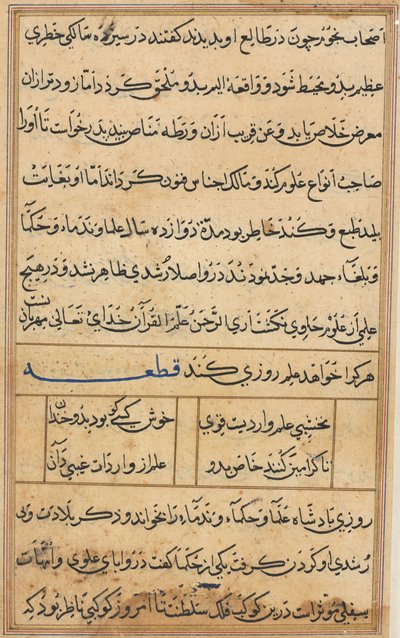 اصحاب نجوم چون در طالع او بدیدند گفتند در سیزده سالگی خطری
عظیم بدو محیط شود و واقعهٔ الیم بدو ملحق گردد اما زود تر ازان
معرض خلاص یابد و عن قریب ازان ورطه مناص بیند پدر خواست تا او را
صاحب انواع علوم کند و مالک اجناس فنون گرداند اما او بغایت
بلید طبع و کند خاطر بود مدة دوازده سال علما و ندماء و حکما
و بلغاء جهد و جد نمودند در او اصلا رشدی ظاهر نشد و در هیچ
علمی از علوم حاوی نگشت آری الرحمن علم القرآن خدای تعالی مهربان
هر کرا خواهد علم روزی کند قطعه
نخشبی علم واردیت قوی خوش کسی کو بود بدو خندان
ناکرامین کنند خاص بدو علم از واردات غیبی دان
روزی پادشاه علما و حکماء و ندماء را بخواند و ذکر بلادت و
او کردن گرفت یکی از حکما گفت در زوایای علوی و امهات
سفلی موثرات درین کوکب فلک سلطنت تا امروز کوکبی ناظر بود که